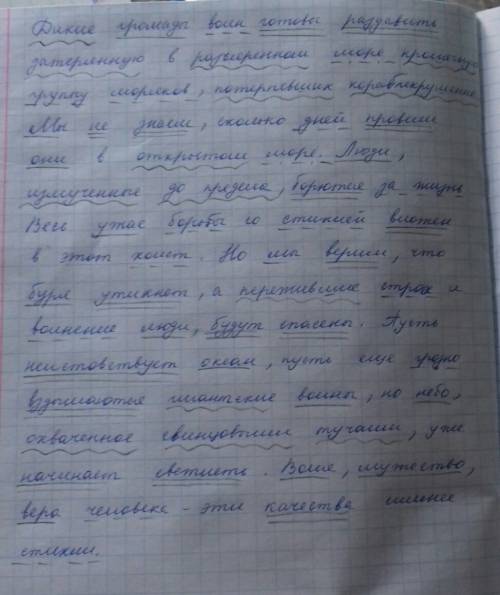 Дикие громады волн готовы раздавить
затерянную в разъяренном море крошечную
группу моряков, потерпевших кораблекрушение.
Мы не знаем, сколько дней провели
они в открытом море. Люди,
измученные до предела, борются за жизнь.
Весь ужас борьбы со стихией вложен
в этот холст. Но мы верим, что
буря утихнет, а пережившие страх и
волнение люди, будут спасены. Пусть
неистовствует океан, пусть еще грозно
вздымаются гигантские волны, но небо,
охваченное свинцовыми тучами, уже
начинает светлеть. Воля, мужество,
вера человека - эти качества сильнее
стихии.